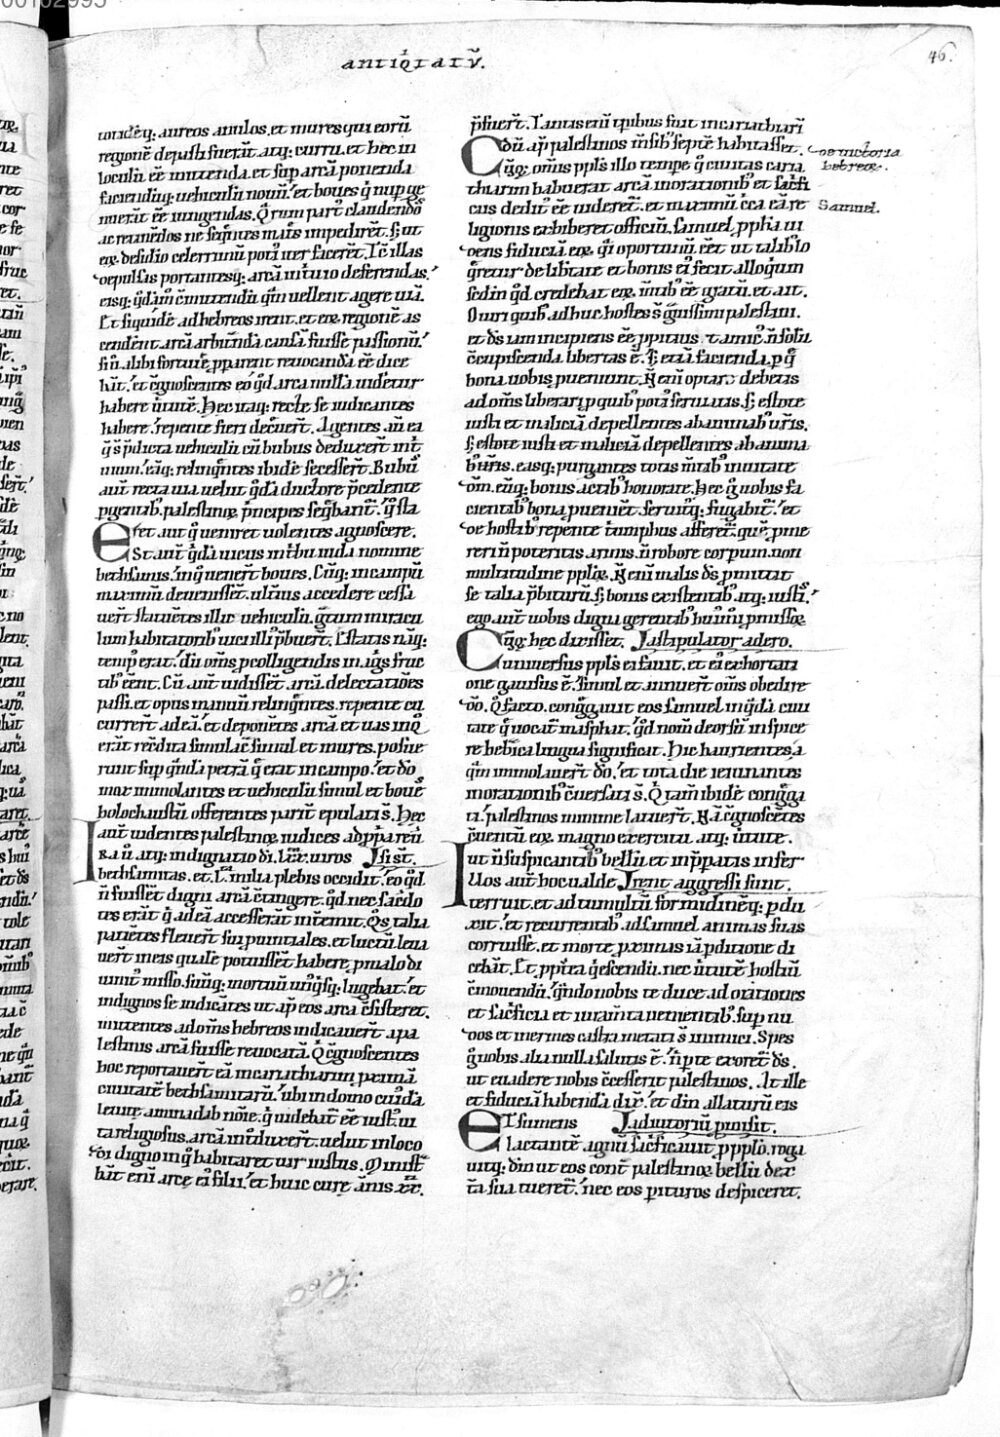 antiq̇tatū.
46.
totidē q; aureos anulos. et mures qui eorū
regionē depasti fuerāt. atq; currū. et hec in
loculū ēē mittenda. et sup arcā ponenda
faciendūq; uehiculū nouū. et boues q̄ nup ge
nuerāt ēē iungendas. Q̊rum part᷒ claudendos
ac retinēdos ne seq̄ntes mat̄s impediret. s; ut
eoꝝ desidio celerrimū poti᷒ iter faceret. Tc̄ illas
depulsas portantesq; arcā in t̊uio deferendas.
eisq; q̊dam c̄mittendū q̊m uellent agere uiā.
Et siquidē ad hebreos irent. et eoꝝ regionē as
cendent arcā arbitrandā causā fuisse passionū.
sin alibi fortune pparent reuocandā ēē dice
bāt. et c̄gnoscentes eo q̊d arca nullā uideretur
habere uirtutē. Hec itaq; recte se iudicantes
habere. repente fieri decreuer̄t. Agentes aūt ea
q̄ s̄ p̄dicta uehiculū cū bubus deduxer̄t in t̊
uium. eāq; relinq̄ntes ibidē secesser̄t. Bubus
aūt recta uia uelut q̊dā ductore p̄cedente
pgentib᷒. palestinoꝝ p̄ncipes seq̄bant᷒. q̊ sta
ret. aut q̊ uenirent uolentes agnoscere.
Est aūt q̊dā uicus in tribu iuda nomine
bethsamis. in q̊ uener̄t boues. Cūq; in campū
maximū deueniss̄et. ulterius accedere cessa
uer̄t statuētes illic uehiculū. q̊rum miracu
lum habitatorib᷒ uici illi᷒ p̄buer̄t. Estatis nāq;
temp᷒ erat. dū om̄s pcolligendis in agris fruc
tib᷒ ēēnt. Cū aūt uidissēt arcā. delectatiōes
passi. et opus manuū relinq̄ntes. repente cu
currer̄t ad eā. et deponētes arcā et uas in q̊
erāt recōdita simulacra simul et mures. posue
runt sup q̄ndā petrā q̄ erat in campo. et do
mox immolantes et uehiculū simul et bouē
holochaustū offerentes pariter epulati s̄. Hec
aūt uidentes palestinoꝝ iudices ad ppriā reū
Ira ū atq; indignatio dī. lxx. uiros si s̄t.
bethsamitas. et. L. milia plebis occidit. eo q̊d
n̄ fuissēt digni arcā c̄tingere. q̊d nec sacdo
tes erāt q̊ ad eā accesserāt interimit. Q̊s talia
patiētes fleuer̄t sui puintiales. et luctū leua
uer̄t meis quale potuissēt habere. p malo di
uinit᷒ misso. suūq; mortuū un᷒q̊sq; lugebat. et
indignos se iudicātes ut ap eos arca c̄sisteret.
mittentes ad om̄s hebreos indicauer̄t a pa
lestinis arcā fuisse reuocatā. Q̊ c̄gnoscentes
hoc reportauer̄t eā in cariathiarim p̄ximā
ciuitatē bethsamitarū. ubi in domo cui᷒dā
leuite aminadab nōīe. q̊ uidebat᷒ ēē iust᷒ ui
ta religiosus. arcā introduxer̄t. uelut in loco
di digno in q̊ habitaret uir iustus. Ministra
bāt enī arce ei᷒ filii. et huic cure ānis. xx.
p̄fuer̄t. Tantis enī tp̄ibus fuit in cariathiari
Cū ap̄ palestinos m̄sib᷒ septē habitasset. de uictoria
Cūq; om̄is ppl̄s illo tempe q̊ ciuitas caria hebreoꝝ.
thiarim habuerat arcā in orationib᷒ et sac̊fi
ciis dedit᷒ ēē uideret᷒. et maximū circa eā re Samuel.
ligionis exhiberet officiū. samuel ppħa ui
dens fiduciā eoꝝ. q̊i oportunū ēēt ut talib᷒ lo
q̊retur de libtate et bonis ei᷒ fecit alloq̊um
sedin q̊d credebat eoꝝ m̄tib᷒ ēē gratū. et ait.
O uiri quib᷒ adhuc hostes s̄ grauissimi palestini.
et ds̄ iam incipiens ēē ppitius. tamic᷒. n̄ solū
c̄cupiscenda libertas ē. s; etiā facienda. p q̄
bona uobis pueniunt. N̄ enī optare debetis
ad om̄s liberari p quib᷒ poti᷒ seruitus. s; estote
iusti et maliciā depellentes ab animab᷒ ur̄is.
s; estote iusti et maliciā depellentes ab anima
b᷒ ur̄is. easq; purgantes totis mentib᷒ inuitate
dm̄. eūq; bonis actib᷒ honorate. Hec q̊ uobis fa
cientib᷒ bona pueniēt. seruitus fugabit᷒. et
de hostib᷒ repente triumphus afferet᷒. que pme
reri n̄ poteritis armis. n̄ robore corpum. non
multitudine pploꝝ. N̄ enī malis ds̄ pmittit
se talia p̄biturū. s; bonis existentib᷒ atq; iustis.
ego aūt uobis digna gerentib᷒ hui᷒mi pmissoꝝ
Cūq; hec dixisset. stipulator adero.
uniuersus ppl̄s ei fauit. et ei᷒ exhortati
one gauisus ē. simul et annuer̄t om̄s obedire
do. Q̊ facto. congregauit eos samuel in q̊dā ciui
tate q̄ uocat᷒ masphat. q̊d nom̄ deorsū inspice
re hebraica lingua significat. Hic haurientes a
q̊m immolauer̄t do. et tota die ieiunantes
in orationib᷒ c̄uersati s̄. Q̊ tam̄ ibidē congrega
ti. palestinos minime latuer̄t. Nā c̄gnoscētes
c̄uentū eoꝝ. magno exercitu. atq; uirtute.
ut n̄ suspicantib᷒ bellū. et inp̄patis infer
Illos aūt hoc ualde rent aggressi sunt.
terruit. et ad tumultū formidinēq; pdu
xit. et recurrentib᷒ ad samuel animas suas
corruisse. et morte p̄ximas iā pditione di
cebāt. Et ppt̄ea q̊escendū. nec uirtutē hostiū
c̄mouendū. q̄ndo nobis te duce ad orationes
et sacrificia et iuram̄ta uenientib᷒. sup nu
dos et inermes castra metati s̄ inimici. Spes
q̊ nobis alia nulla salutis ē. n̄ p te exoret᷒ ds̄.
ut euadere nobis c̄cesserit palestinos. At ille
et fiduciā habendā dixit. et dm̄ allaturū eis
Et sumens adiutoriū pmisit.
lactantē agnū sacrificauit p pplo. roga
uitq; dm̄ ut eos cont᷒ palestinoꝝ bellū dex
t̄a sua tueret᷒. nec eos p̄ituros despiceret.